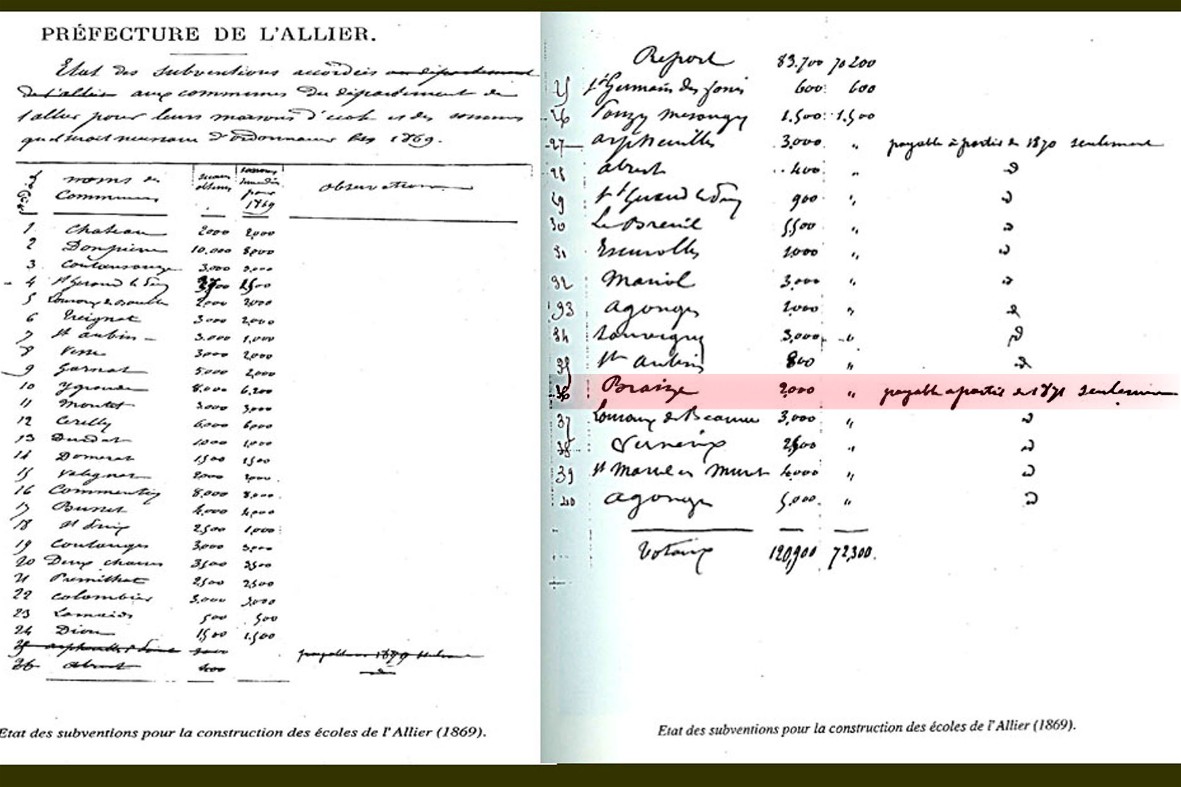 PRÉFECTURE DE L'ALLIER.
Etat des subventions accordées au département
de l'allier aux communes du département de
l'allier pour leurs maisons d'école et des sommes
qu'il serait nécessaire d'ordonnancer 1869.
noms des Communes
sommes pour 1869
observations
1 Chateau 2000 2,000
2 Dompierre 10.000 8,000
3 Coutansouze 3,000
4 St Geraud le Puy
5 Louroux de Bouble 2,000 2000
6 Treignat 3000 2,000
7 St aubin 3.000 1,000
8 Vesse 3000 2,000
9 Garnat 5,000 2,000
10 Ygrande 8,000 6,200
11 Montet 3000 3,000
12 Cerilly 6,000 6,000
13 Durdat 1,000 1,000
14 Domerat 1,500 1,500
15 Valignat
16 Commentry 8,000 8,000
17 Busset 4,000 4,000
18 2500 1,000
19 Coulanges 3,000 3,000
20 Deux chaises 3500 3500
21 Premilhat 2,500 2,500
22 Colombier 3.000 3,000
23 Lamaids 500 500
24 Diou 1,500 1.500
25
26 abrest 400
Etat des subventions pour la construction des écoles de l'Allier (1869).
Report 83.700 70 200
25 St Germain des fossés 600 600
26 Touzy mesangy 1.500 1.500
27 arpheuilles 3,000 " payable à partir de 1870 seulement
28 abrest 400 " d
29 St Gerand le Puy 900 " d
30 Le Breuil 5,500 " d
31 Escurolles 1,000 " d
32 Mariol 3,000 " d
33 agonges 2,000 " d
34 Souvigny 3,000 " d
35 St Aubin 800 " d
36 Braize 2,000 " payable a partir de 1871 seulement
37 Louroux de Beaune 3,000 " d
38 Verneix 2,500 " d
39 St Marcel en Murat 4,000 " d
40 agonge 5,000 " d
Totaux 120,900 72,300.
Etat des subventions pour la construction des écoles de l'Allier (1869).